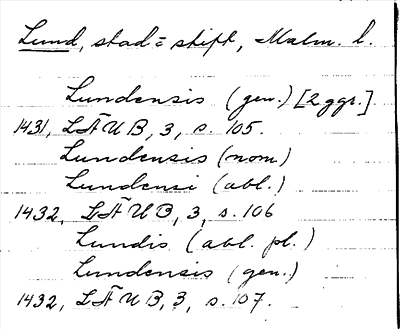 Lund, stad = stift, Malm. l.
Lundensis (gen.) [2 ggr.]
1431, LÄUB, 3, s. 105.
Lundensis (nom)
Lundensi (abl.)
1432, LÄUB, 3, s. 106
Lundis (abl. pl.)
Lundensis (gen.)
1432, LÄUB, 3, s. 107.